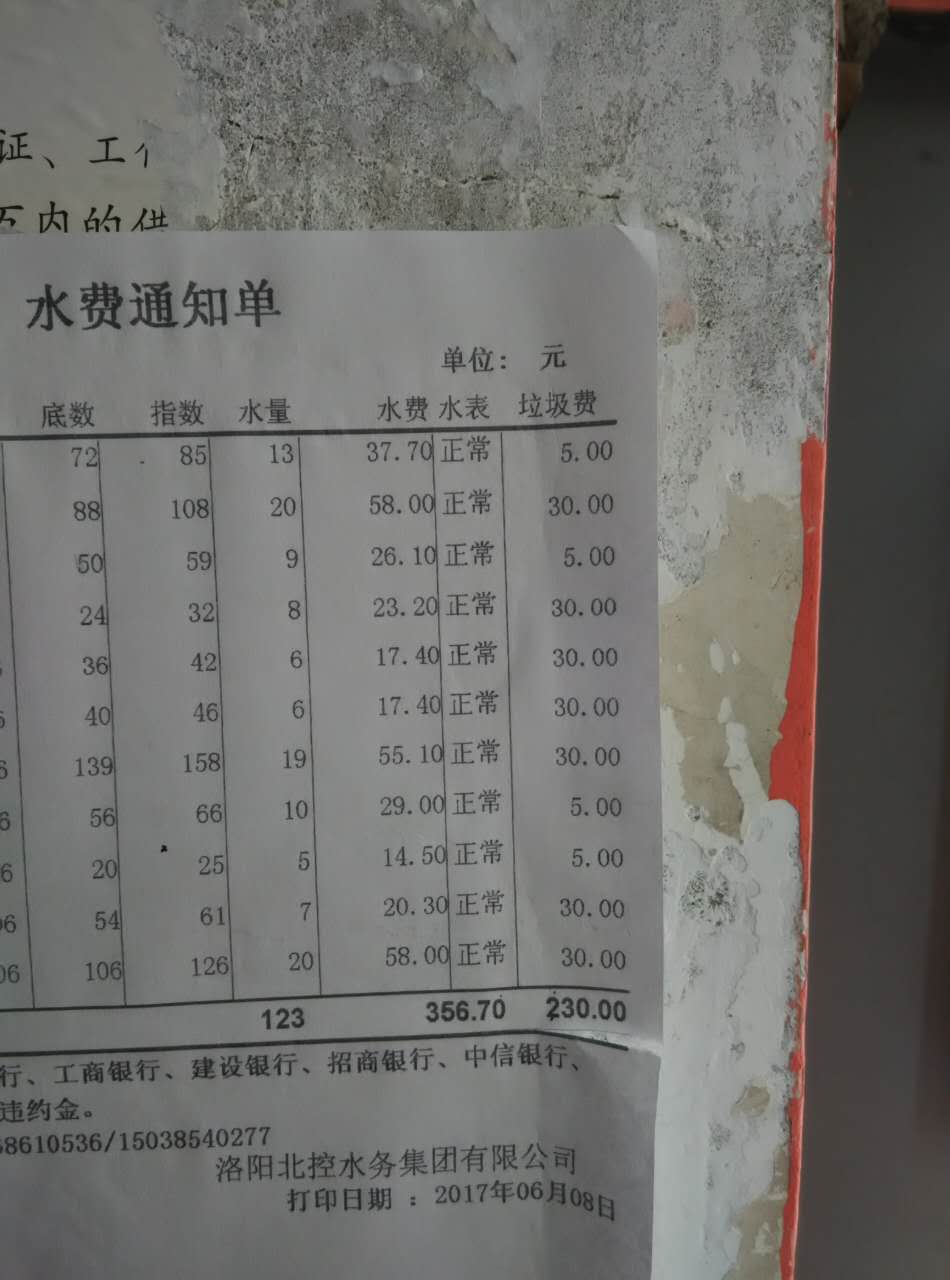 证、工
内的供
水费通知单
单位： 元
底数 指数 水量 水费 水表 垃圾费
72 85 13 37.70 正常 5.00
88 108 20 58.00 正常 30.00
50 59 9 26.10 正常 5.00
24 32 8 23.20 正常 30.00
36 42 6 17.40 正常 30.00
6 40 46 6 17.40 正常 30.00
6 139 158 19 55.10 正常 30.00
6 56 66 10 29.00 正常 5.00
6 20 25 5 14.50 正常 5.00
06 54 61 7 20.30 正常 30.00
06 106 126 20 58.00 正常 30.00
123 356.70 230.00
行、工商银行、建设银行、招商银行、中信银行、
违约金。
68610536/15038540277
洛阳北控水务集团有限公司
打印日期 ：2017年06月08日